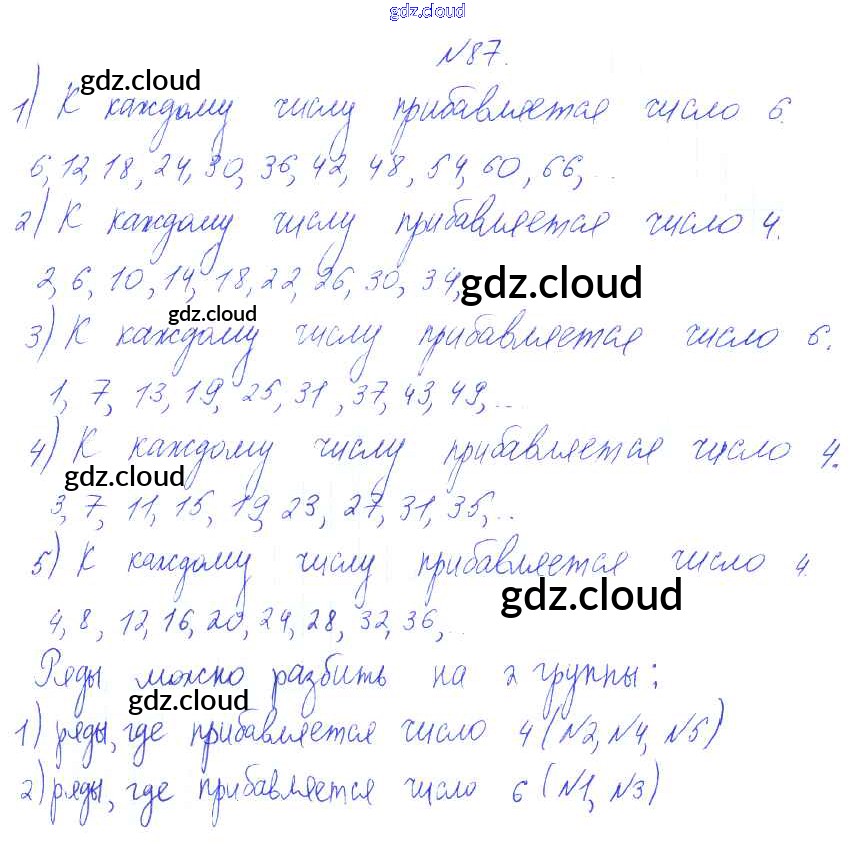 gdz.cloud
№87.
gdz.cloud
1) К каждому числу прибавляется число 6.
6, 12, 18, 24, 30, 36, 42, 48, 54, 60, 66, ...
2) К каждому числу прибавляется число 4.
2, 6, 10, 14, 18, 22, 26, 30, 34,
gdz.cloud
gdz.cloud
3) К каждому числу прибавляется число 6.
1, 7, 13, 19, 25, 31, 37, 43, 49, ...
4) К каждому числу прибавляется число 4.
gdz.cloud
3, 7, 11, 15, 19, 23, 27, 31, 35, ...
5) К каждому числу прибавляется число 4.
gdz.cloud
4, 8, 12, 16, 20, 24, 28, 32, 36, ...
Ряды можно разбить на 2 группы:
gdz.cloud
1) ряды, где прибавляется число 4 (№2, №4, №5)
2) ряды, где прибавляется число 6 (№1, №3)